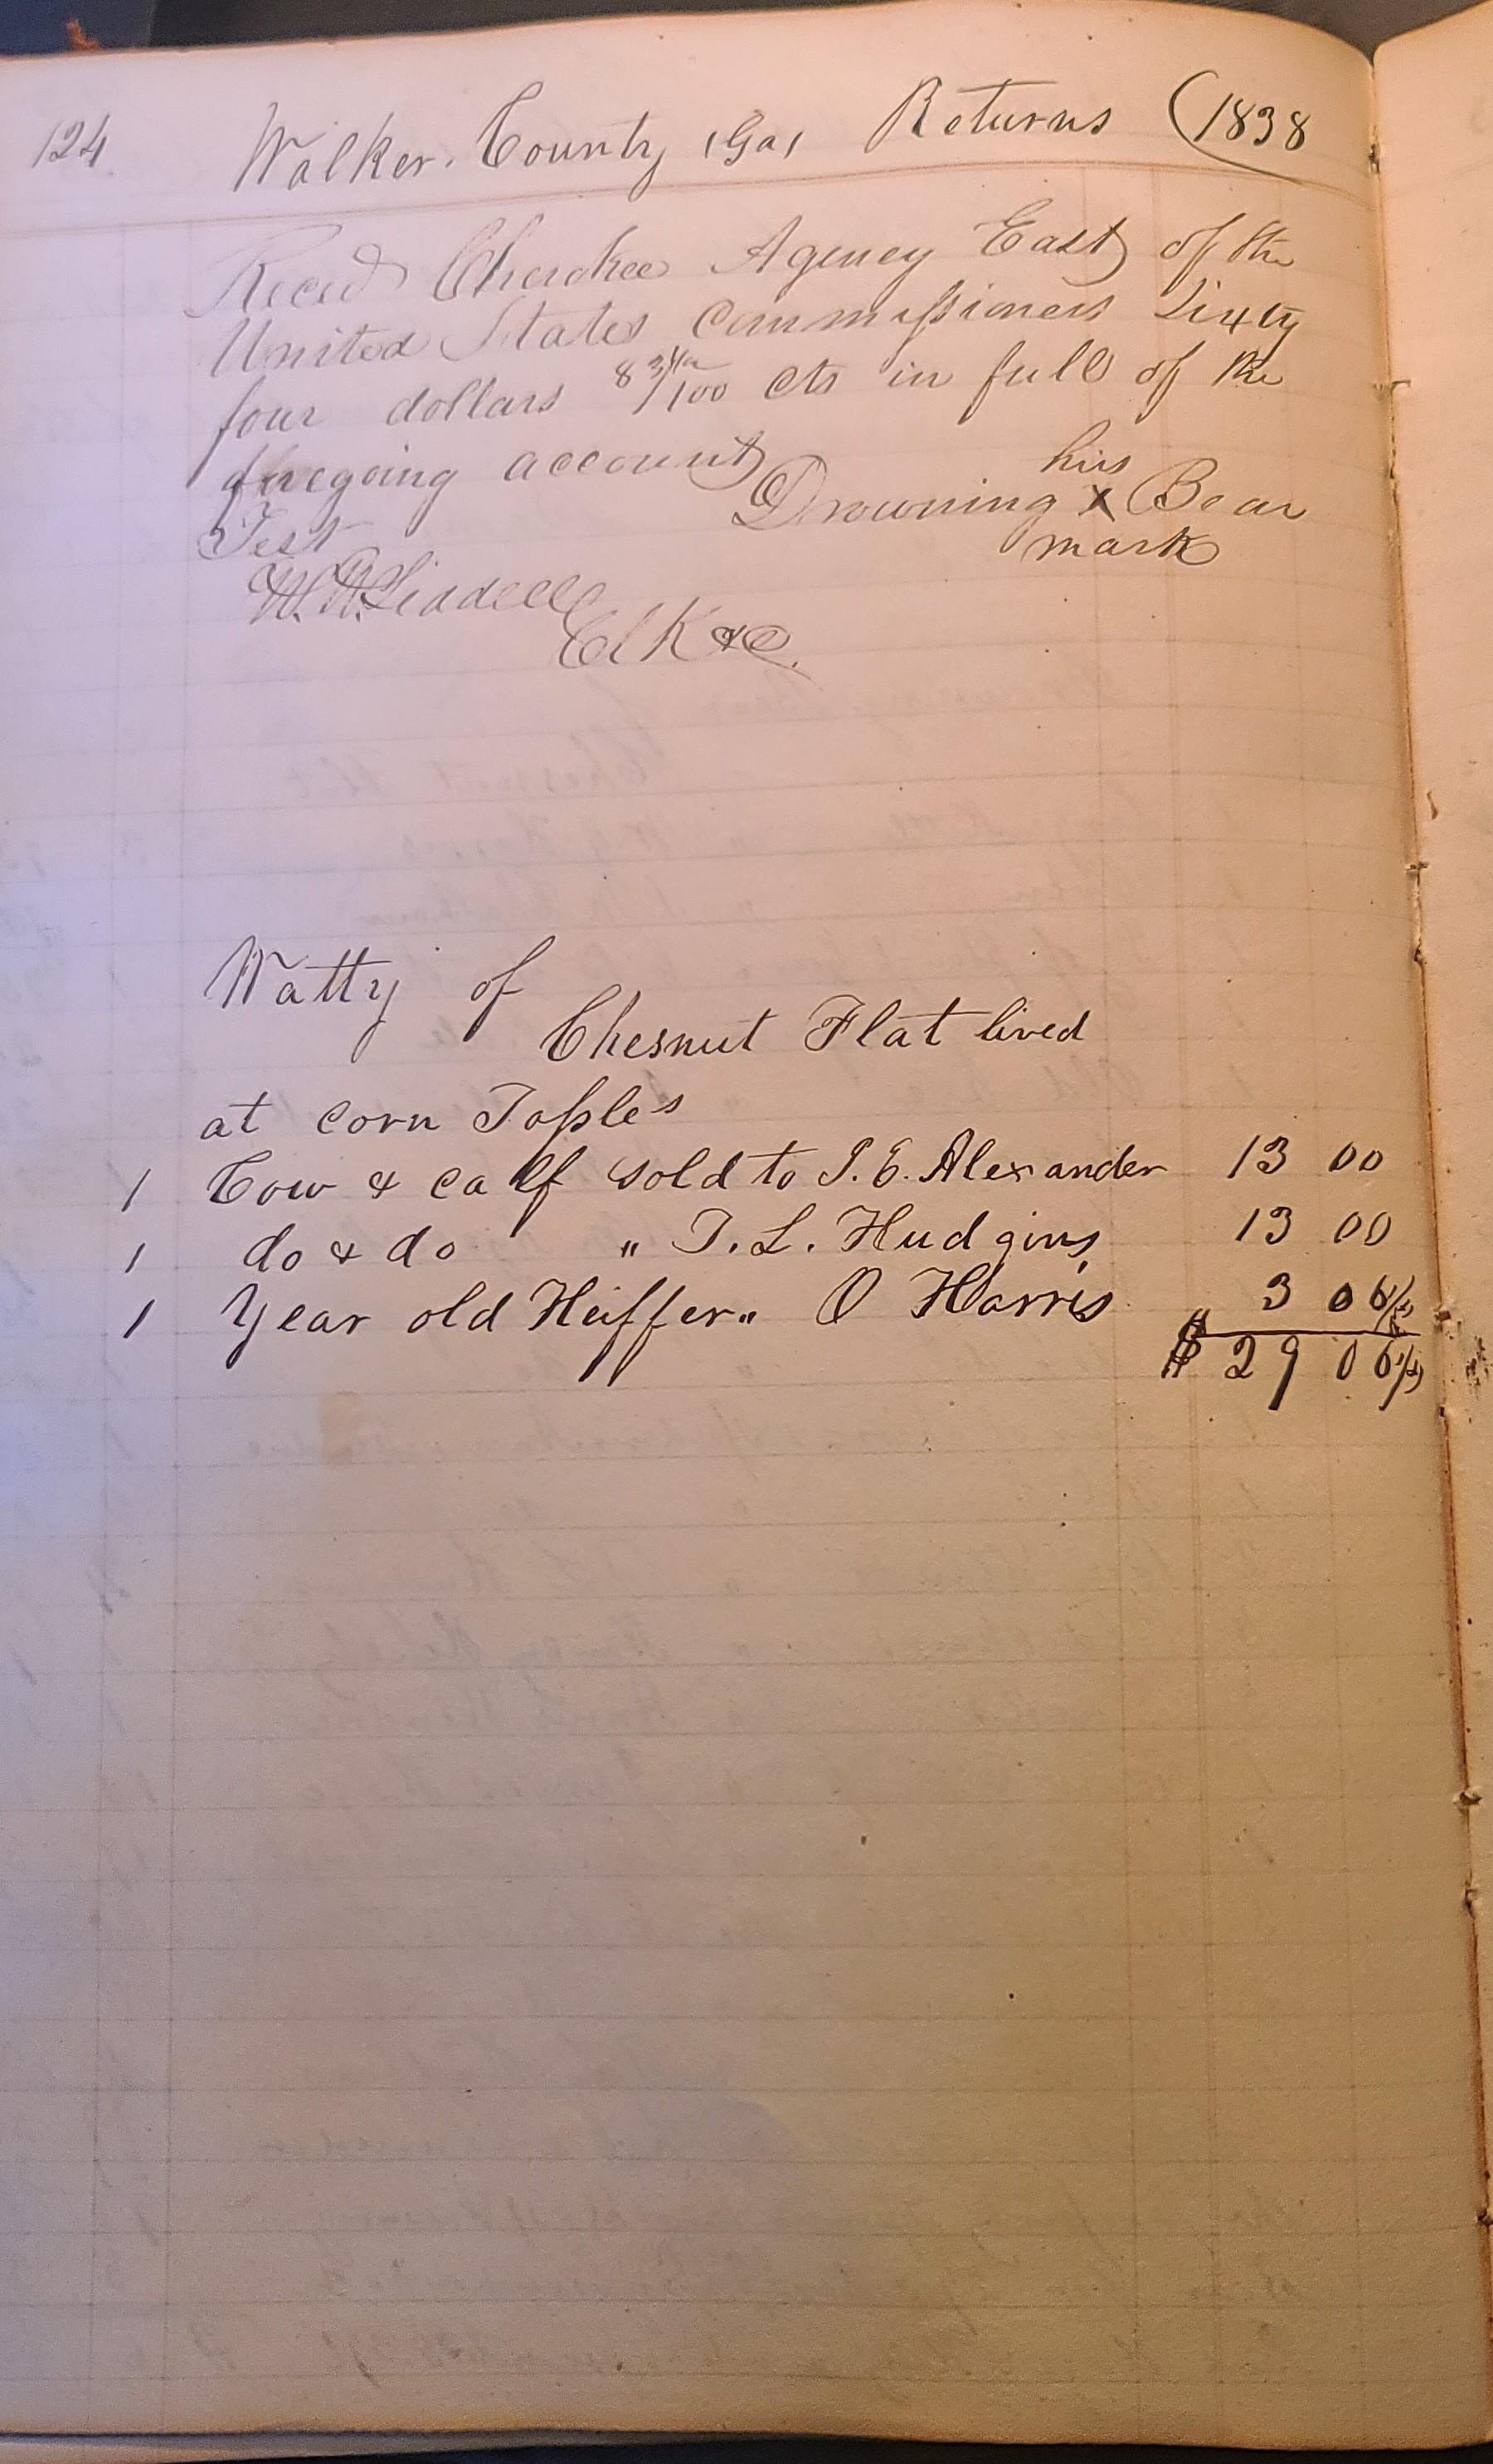 124 Walker County (Ga) Returns (1838
Recd Cherokee Agency East of the
United States Commissioners Sixty
four dollars 8 3/4/100 cts in full of the
foregoing account
his
Drowning x Bear
mark
Test
W. W. Liddell
Clk &c.
Watty of
Chesnut Flat lived
at corn Tassles
1 Cow & calf sold to J. E. Alexander 13 00
1 do & do " T. L. Hudgins 13 00
1 Year old Heiffer " O Harris " 3 06 1/2
$ 29 06 1/2